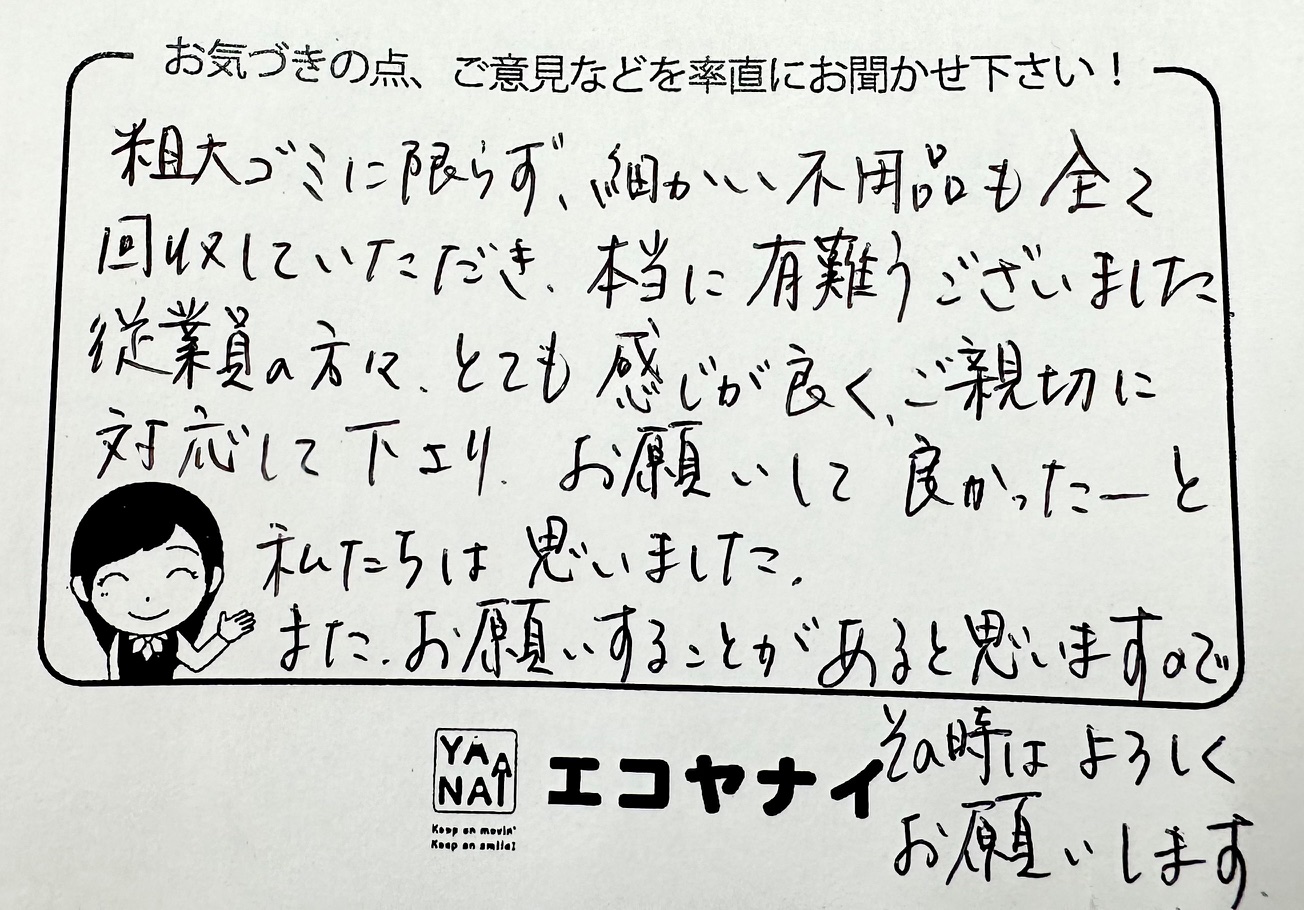 お気づきの点、ご意見などを率直にお聞かせ下さい！
粗大ゴミに限らず、細かい不用品も全て
回収していただき、本当に有難うございました
従業員の方々、とても感じが良く、ご親切に
対応して下さり、お願いして良かったーと
私たちは思いました。
また、お願いすることがあると思いますので
その時はよろしく
お願いします。
YANAI
エコヤナイ
Keep on movin'
Keep on smile!